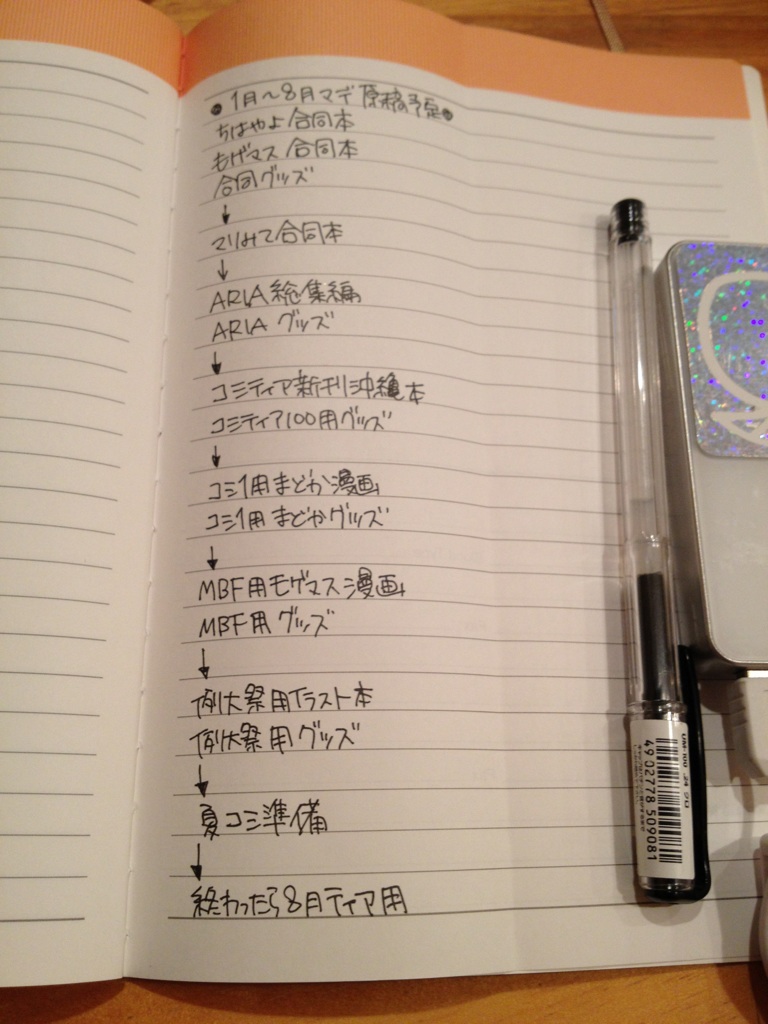 ●1月〜8月マデ原稿予定●
ちはやよ合同本
もげマス合同本
合同グッズ
↓
マリみて合同本
↓
ARIA総集編
ARIAグッズ
↓
コミティア新刊沖縄本
コミティア100用グッズ
↓
コミ1用まどか漫画
コミ1用まどかグッズ
↓
MBF用モゲマス漫画
MBF用グッズ
↓
例大祭用イラスト本
例大祭用グッズ
↓
夏コミ準備
↓
終わったら8月ティア用
4902778 509081